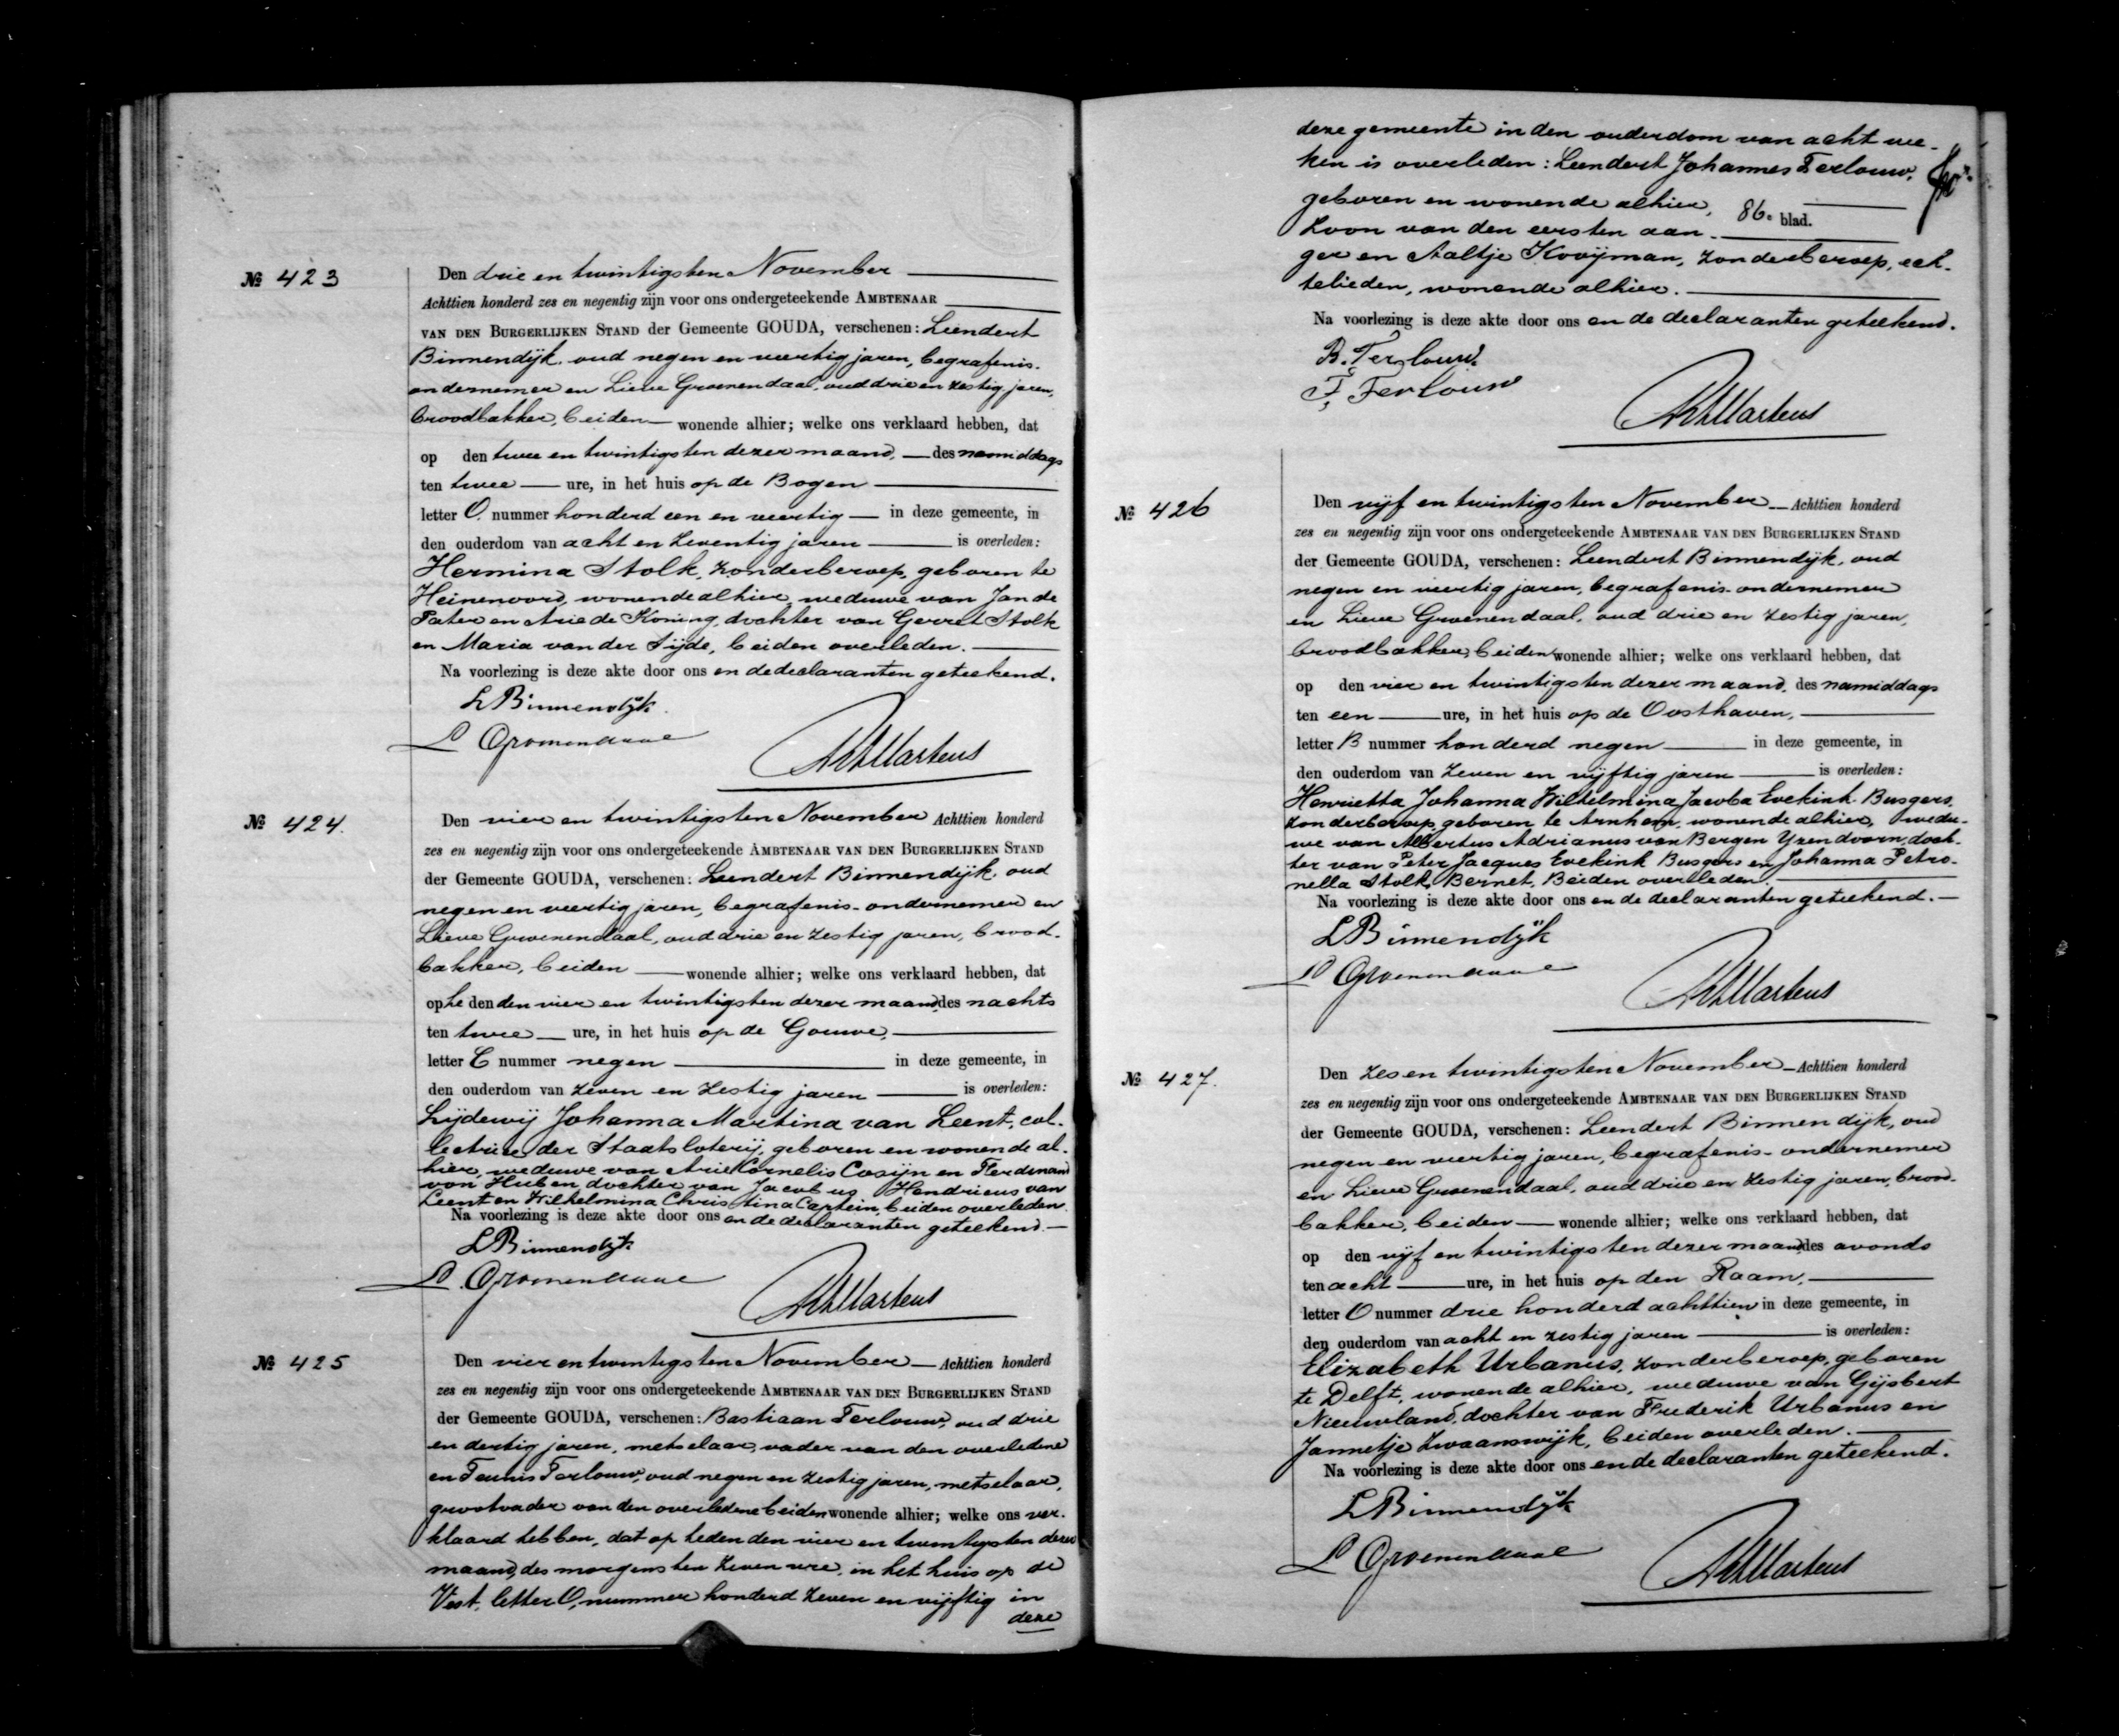 № 423
Den drie en twintigsten November
Achttien honderd zes en negentig zijn voor ons ondergeteekende AMBTENAAR
VAN DEN BURGERLIJKEN STAND der Gemeente GOUDA, verschenen: Leendert
Binnendijk, oud negen en veertig jaren, begrafenis-
ondernemer en Lieve Groenendaal, oud drie en zestig jaren,
broodbakker, beiden wonende alhier; welke ons verklaard hebben, dat
op den twee en twintigsten dezer maand, des namiddags
ten twee ure, in het huis op de Bogen
letter O. nummer honderd een en veertig in deze gemeente, in
den ouderdom van acht en zeventig jaren is overleden:
Hermina Stolk, zonder beroep, geboren te
Heinenoord, wonende alhier, weduwe van Jan de
Pater en Arie de Koning, dochter van Gerret Stolk
en Maria van der Sijde, beiden overleden.
Na voorlezing is deze akte door ons en de declaranten geteekend.
L Binnendijk
L Groenendaal
Martens
№ 424.
Den vier en twintigsten November Achttien honderd
zes en negentig zijn voor ons ondergeteekende AMBTENAAR VAN DEN BURGERLIJKEN STAND
der Gemeente GOUDA, verschenen: Leendert Binnendijk, oud
negen en veertig jaren, begrafenis-ondernemer en
Lieve Groenendaal, oud drie en zestig jaren, brood-
bakker, beiden wonende alhier; welke ons verklaard hebben, dat
op heden den vier en twintigsten dezer maand, des nachts
ten twee ure, in het huis op de Gouwe,
letter C nummer negen in deze gemeente, in
den ouderdom van zeven en zestig jaren is overleden:
Lijdewij Johanna Martina van Leent, col-
lectrice der Staatsloterij, geboren en wonende al-
hier, weduwe van Arie Cornelis Cosijn en Ferdinand
von Huben dochter van Jacobus Hendricus van
Leent en Wilhelmina Christina Captein, beiden overleden.
Na voorlezing is deze akte door ons en de declaranten geteekend.
L Binnendijk
L Groenendaal
Martens
№ 425
Den vier en twintigsten November Achttien honderd
zes en negentig zijn voor ons ondergeteekende AMBTENAAR VAN DEN BURGERLIJKEN STAND
der Gemeente GOUDA, verschenen: Bastiaan Terlouw, oud drie
en dertig jaren, metselaar, vader van den overledene
en Teunis Terlouw, oud negen en zestig jaren, metselaar,
grootvader van den overledene beiden wonende alhier; welke ons ver-
klaard hebben, dat op heden den vier en twintigsten dezer
maand, des morgens ten zeven ure, in het huis op de
Vest, letter O, nummer honderd zeven en vijftig in
deze
deze gemeente in den ouderdom van acht we-
ken is overleden: Leendert Johannes Terlouw,
geboren en wonende alhier,
86e blad.
zoon van den eersten aan-
ger en Aaltje Kooijman, zonder beroep, ech-
telieden, wonende alhier.
Na voorlezing is deze akte door ons en de declaranten geteekend.
B. Terlouw
T. Terlouw
Martens
№ 426
Den vijf en twintigsten November Achttien honderd
zes en negentig zijn voor ons ondergeteekende AMBTENAAR VAN DEN BURGERLIJKEN STAND
der Gemeente GOUDA, verschenen: Leendert Binnendijk, oud
negen en veertig jaren, begrafenis-ondernemer
en Lieve Groenendaal, oud drie en zestig jaren,
broodbakker, beiden wonende alhier; welke ons verklaard hebben, dat
op den vier en twintigsten dezer maand, des namiddags
ten een ure, in het huis op de Oosthaven,
letter B nummer honderd negen in deze gemeente, in
den ouderdom van zeven en vijftig jaren is overleden:
Henrietta Johanna Wilhelmina Jacoba Evekink Busgers,
zonder beroep, geboren te Arnhem, wonende alhier, wedu-
we van Albertus Adrianus van Bergen Yzendoorn, doch-
ter van Peter Jacques Evekink Busgers en Johanna Petro-
nella Stolk Bernet, Beiden overleden.
Na voorlezing is deze akte door ons en de declaranten geteekend.
L Binnendijk
L Groenendaal
Martens
№ 427.
Den zes en twintigsten November Achttien honderd
zes en negentig zijn voor ons ondergeteekende AMBTENAAR VAN DEN BURGERLIJKEN STAND
der Gemeente GOUDA, verschenen: Leendert Binnendijk, oud
negen en veertig jaren, begrafenis-ondernemer
en Lieve Groenendaal, oud drie en zestig jaren, brood-
bakker, beiden wonende alhier; welke ons verklaard hebben, dat
op den vijf en twintigsten dezer maand, des avonds
ten acht ure, in het huis op den Raam,
letter O nummer drie honderd achttien in deze gemeente, in
den ouderdom van acht en zestig jaren is overleden:
Elizabeth Urbanus, zonder beroep, geboren
te Delft, wonende alhier, weduwe van Gijsbert
Nieuwland, dochter van Frederik Urbanus en
Jannetje Zwaanswijk, beiden overleden.
Na voorlezing is deze akte door ons en de declaranten geteekend.
L Binnendijk
L Groenendaal
Martens